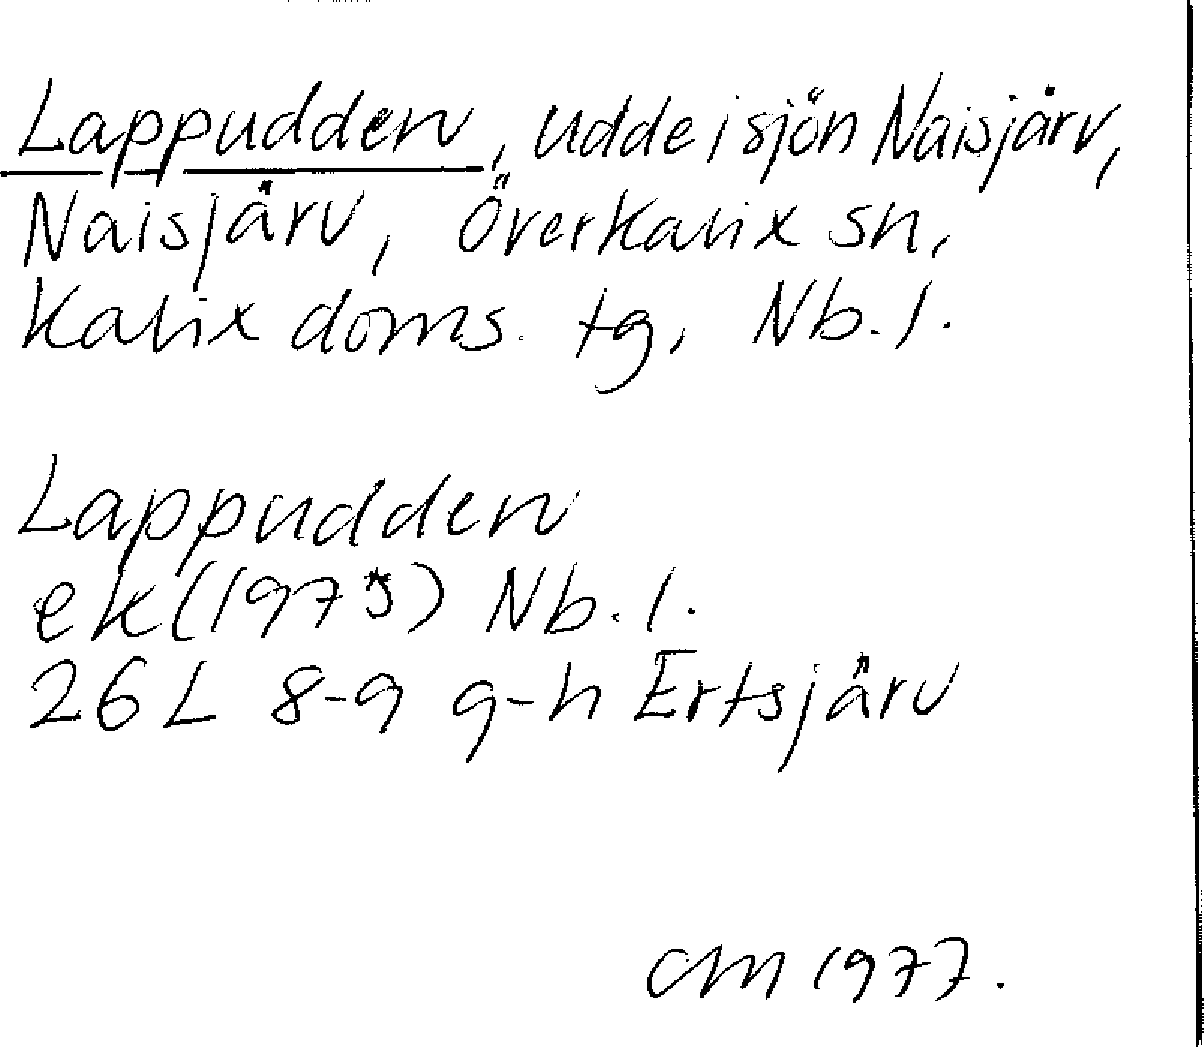 Lappudden, udde i sjön Naisjärv,
Naisjärv, Överkalix sn,
Kalix doms. tg, Nb. l.
Lappudden
ek (1975) Nb. l.
26 L 8-9 g-h Ertsjärv
CM 1977.